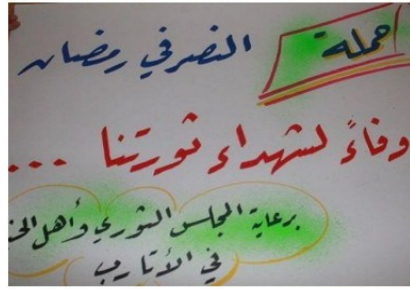 حملة النصر في رمضان
وفاءً لشهداء ثورتنا ...
برعاية المجلس الثوري وأهل
في الأتارب